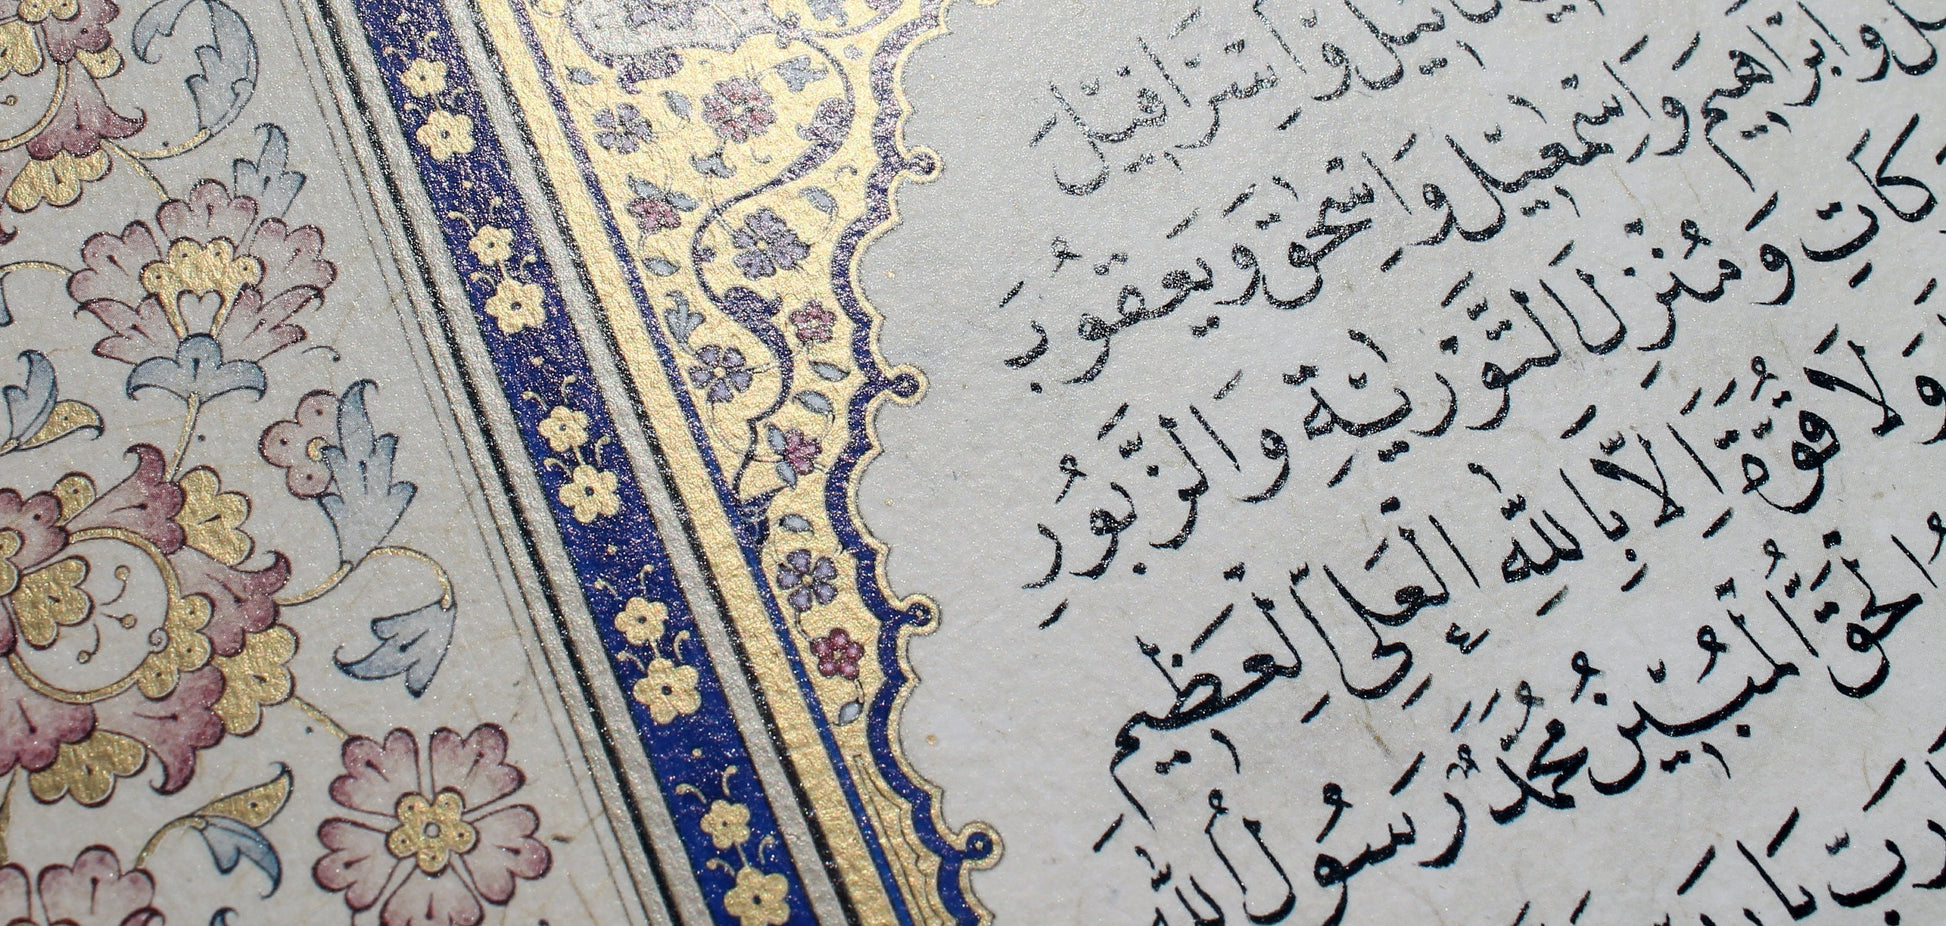 وَاِسْرَافِيلَ
وَاِبْرَاهِيمَ وَاِسْمٰعِيلَ وَاِسْحٰقَ وَيَعْقُوبَ
كَاتِ وَمُنْزِلَ التَّوْرٰيةِ وَالزَّبُورِ
وَلَا قُوَّةَ اِلَّا بِاللّٰهِ الْعَلِىِّ الْعَظِيمِ
الْحَقُّ الْمُبِينُ مُحَمَّدٌ رَسُولُ اللّٰهِ
رَبِّ يَا